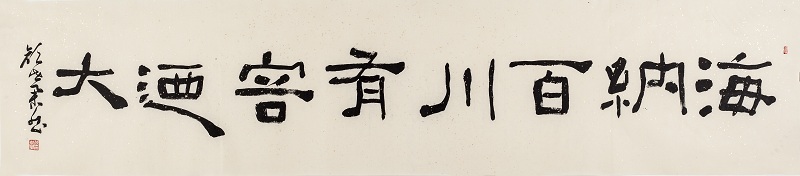 海納百川有容迺大